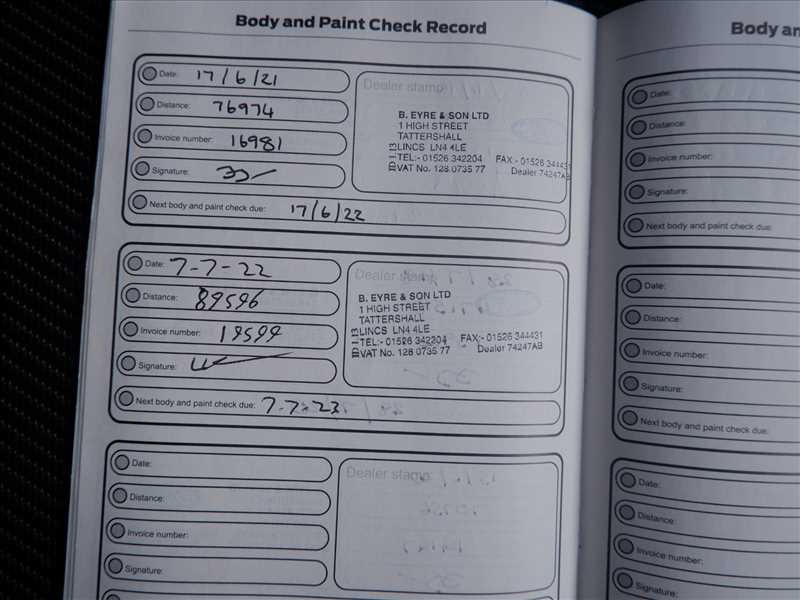 Body and Paint Check Record
Date: 17/6/21
Distance: 76974
Invoice number: 16981
Signature:
Next body and paint check due: 17/6/22
Dealer stamp
B. EYRE & SON LTD
1 HIGH STREET
TATTERSHALL
LINCS LN4 4LE
TEL:- 01526 342204 FAX:- 01526 344431
VAT No. 128 0735 77 Dealer 74247AB
Date: 7-7-22
Distance: 89596
Invoice number: 19599
Signature:
Next body and paint check due: 7.7.23
Dealer stamp
B. EYRE & SON LTD
1 HIGH STREET
TATTERSHALL
LINCS LN4 4LE
TEL:- 01526 342204 FAX:- 01526 344431
VAT No. 128 0735 77 Dealer 74247AB
Date:
Distance:
Invoice number:
Signature:
Dealer stamp
Body
Date:
Distance:
Invoice number:
Signature:
Next body and paint check due:
Date:
Distance:
Invoice number:
Signature:
Next body and paint check due:
Date:
Distance:
Invoice number:
Signature: